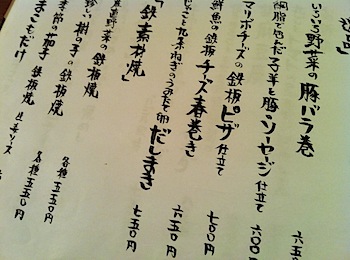 いろいろ野菜の豚バラ巻 六五
網脂で包んだ子羊と豚ソーセージ仕立て 六〇〇
マリボチーズの鉄板ピザ仕立て 七〇〇円
鮮魚の鉄板チーズ春巻き 六五〇円
九条ねぎのうみたて卵だしまき 七五〇円
「鉄素材焼」
野菜の鉄板焼
樹の子の鉄板焼 各種五五〇円
季節の茄子鉄板焼 各種五五〇円
まこもだけ